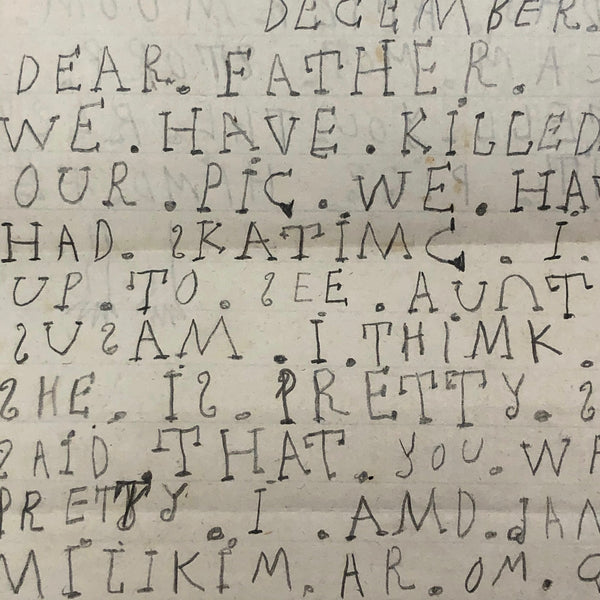 DECEMBER.
DEAR. FATHER.
WE. HAVE. KILLED
OUR. PIG. WE. HAV
HAD. SKATIMG. I.
UP. TO. SEE. AUNT
SUSAM. I. THIMK.
SHE. IS. PRETTY. S
SAID. THAT. YOU. WA
PRETTY. I. AMD. JAN
MILIKIM. AR. OM. G